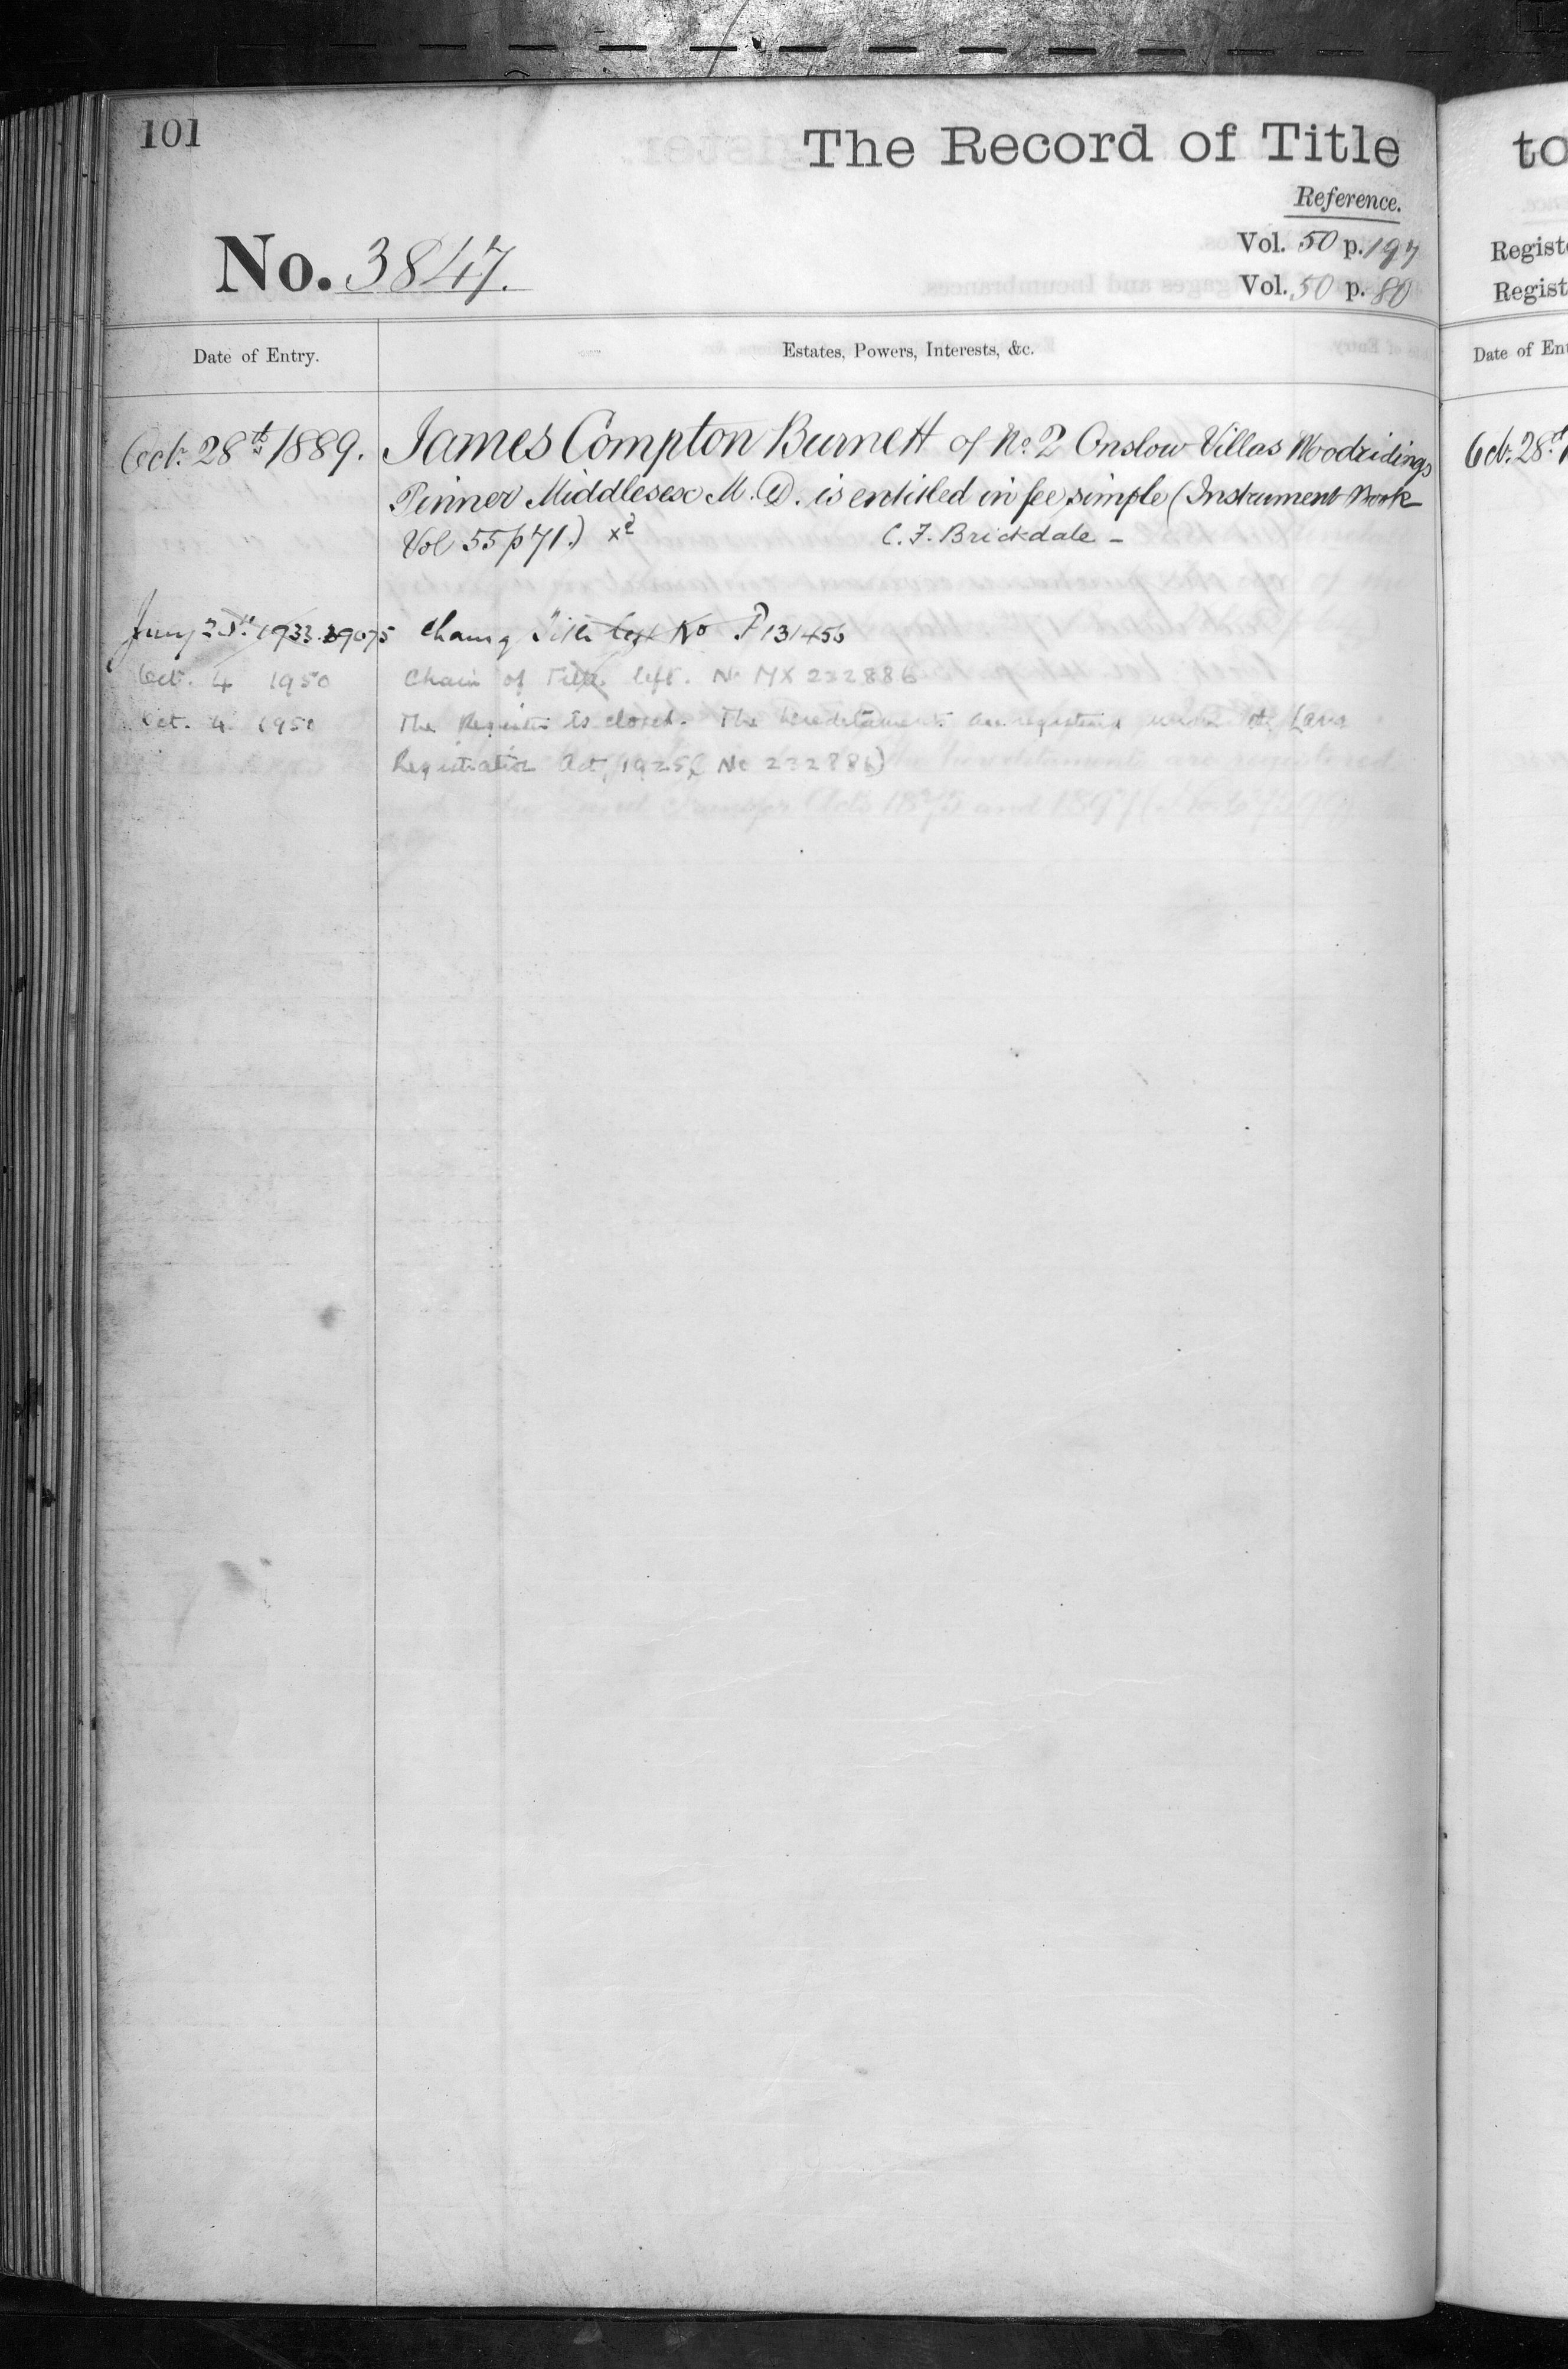 101
The Record of Title
Reference.
No. 3847.
Vol. 50 p. 197
Vol. 50 p. 80
Date of Entry.
Estates, Powers, Interests, &c.
Oct: 28th 1889.
James Compton Burnett of No. 2 Onslow Villas Woodridings
Pinner Middlesex M.D. is entitled in fee simple (Instrument Book
Vol 55 p 71.)
C. F. Brickdale -
1933
Title No P131456
Oct. 4 1950
Chain of Title left. No MX 232886
Oct. 4 1950
The Register is closed. The hereditaments are registered under the Land
Registration Act, 1925 (No 232886)
to
Regist
Regist
Date of En
Oct. 28th